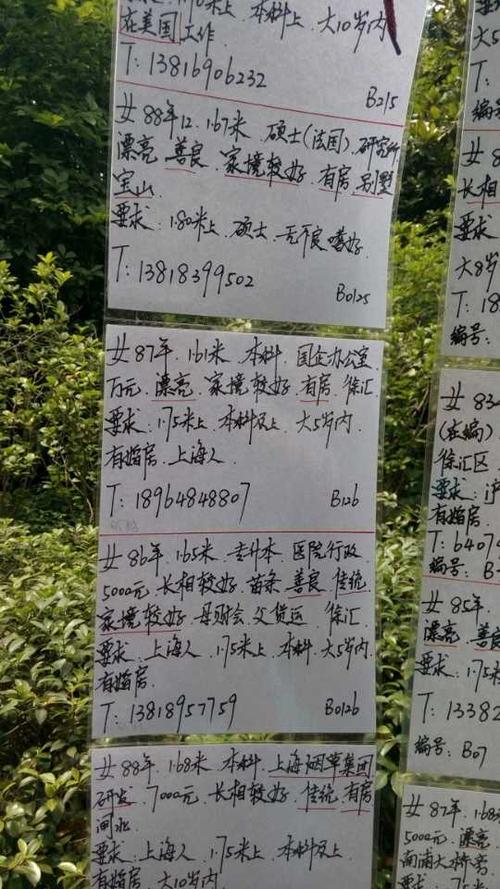 在美国工作
T: 13816906232
B215
女88年12.1.67米.硕士(法国).研究所
漂亮.善良.家境较好.有房.别墅
宝山
要求:1.80米上.硕士.无不良嗜好.
T: 13818399502
B0125
女87年.1.61米.本科.国企办公室
万元.漂亮.家境较好.有房.徐汇
要求:1.75米上.本科及上.大5岁内
有婚房.上海人.
T: 18964848807
B126
女86年.1.65米.专升本.医院行政
5000元.长相较好.苗条.善良.传统
家境较好.母财会.父货运.徐汇
要求:上海人.1.75米上.本科.大5岁内
有婚房.
T: 13818957759
B0126
女88年.1.68米.本科.上海烟草集团
研发.7000元.长相较好.传统.有房
闸北
要求:上海人.1.75米上.本科及上
有婚房.大10岁内
大5
编号
女8
长相
要求
大8岁
T: 18
编号:
女83
(在编)
徐汇区
要求:沪
有婚房
T: 6407
编号:B
女85年.
漂亮.善良
要求:1.75米
T: 1338
编号:B07
女87年.1.68
5000元.漂亮
要求: